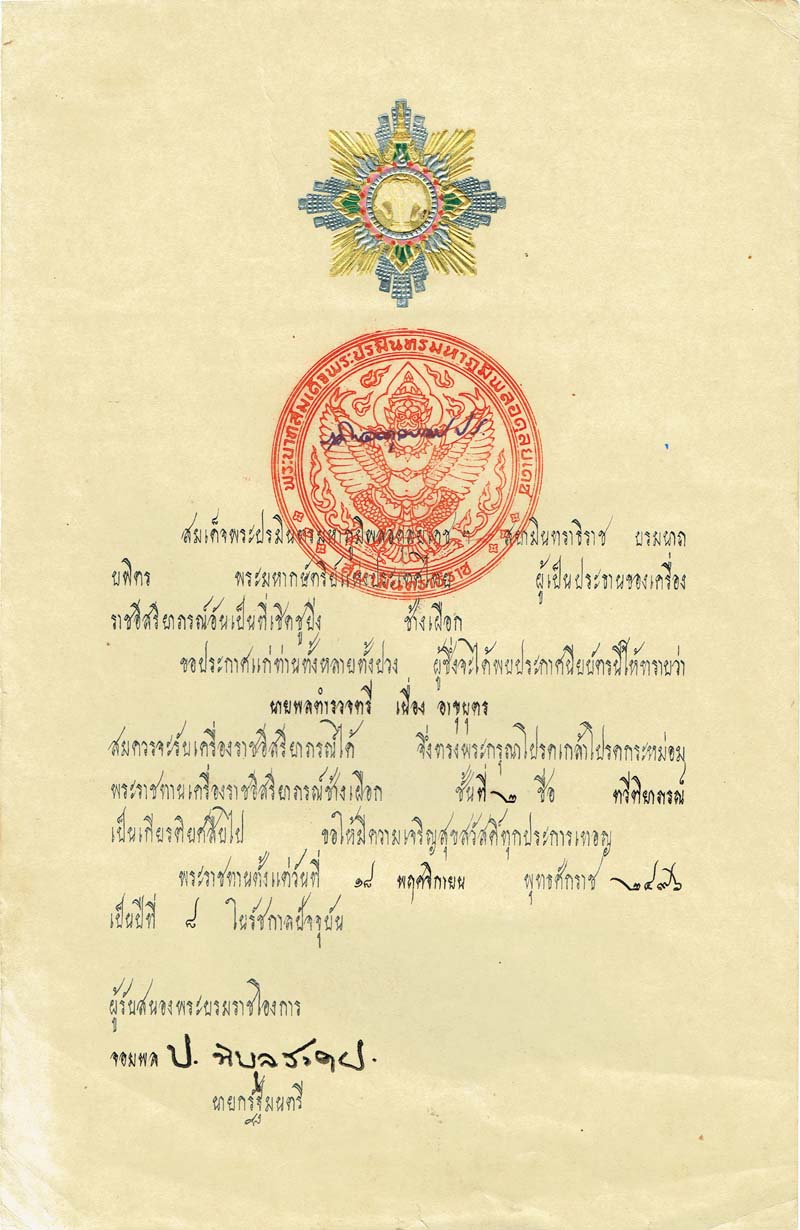 พระบาทสมเด็จพระปรมินทรมหาภูมิพลอดุลยเดช
สยามินทราธิราช
ภูมิพลอดุลยเดช ปร
สมเด็จพระปรมินทรมหาภูมิพลอดุลยเดช ฯ สยามินทราธิราช บรมนาถ
บพิตร พระมหากษัตริย์แห่งประเทศไทย ผู้เป็นประธานของเครื่อง
ราชอิสริยาภรณ์อันเป็นที่เชิดชูยิ่ง ช้างเผือก
ขอประกาศแก่ท่านทั้งหลายทั้งปวง ผู้ซึ่งจะได้พบประกาศนียบัตรนี้ให้ทราบว่า
นายพลตำรวจตรี เนื่อง อาขุบุตร
สมควรจะรับเครื่องราชอิสริยาภรณ์ได้ จึ่งทรงพระกรุณาโปรดเกล้าโปรดกระหม่อม
พระราชทานเครื่องราชอิสริยาภรณ์ช้างเผือก ชั้นที่ ๒ ชื่อ ทวีติยาภรณ์
เป็นเกียรติยศสืบไป ขอให้มีความเจริญสุขสวัสดิ์ทุกประการเทอญ
พระราชทานตั้งแต่วันที่ ๑๘ พฤศจิกายน พุทธศักราช ๒๔๙๖
เป็นปีที่ ๘ ในรัชกาลปัจจุบัน
ผู้รับสนองพระบรมราชโองการ
จอมพล ป. พิบูลสงคราม
นายกรัฐมนตรี